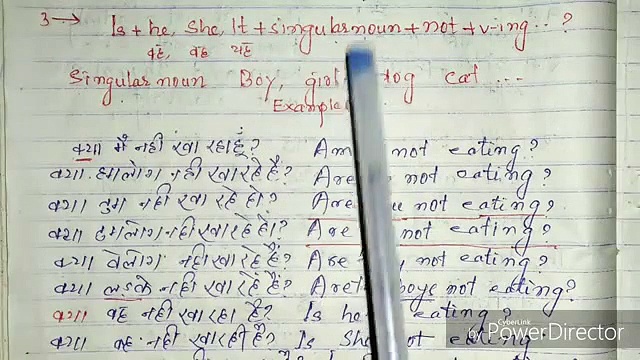 3 → Is + he, she, It + singular noun + not + v-ing .. ?
वह, वह यह
Singular noun Boy, girl dog cat ...
Example
क्या मैं नहीं खा रहा हूं? Am not eating?
क्या हमलोग नहीं खा रहे हैं? Are not eating?
क्या तुम नहीं खा रहे हो? Are not eating?
क्या तुमलोग नहीं खा रहे हो? Are not eating?
क्या वेलोग नहीं खा रहे हैं? Are not eating?
क्या लड़के नहीं खा रहे हैं? Are boys not eating?
क्या वह नहीं खा रहा है? Is he eating?
क्या वह नहीं खा रही है? Is she not eating
CyberLink
PowerDirector